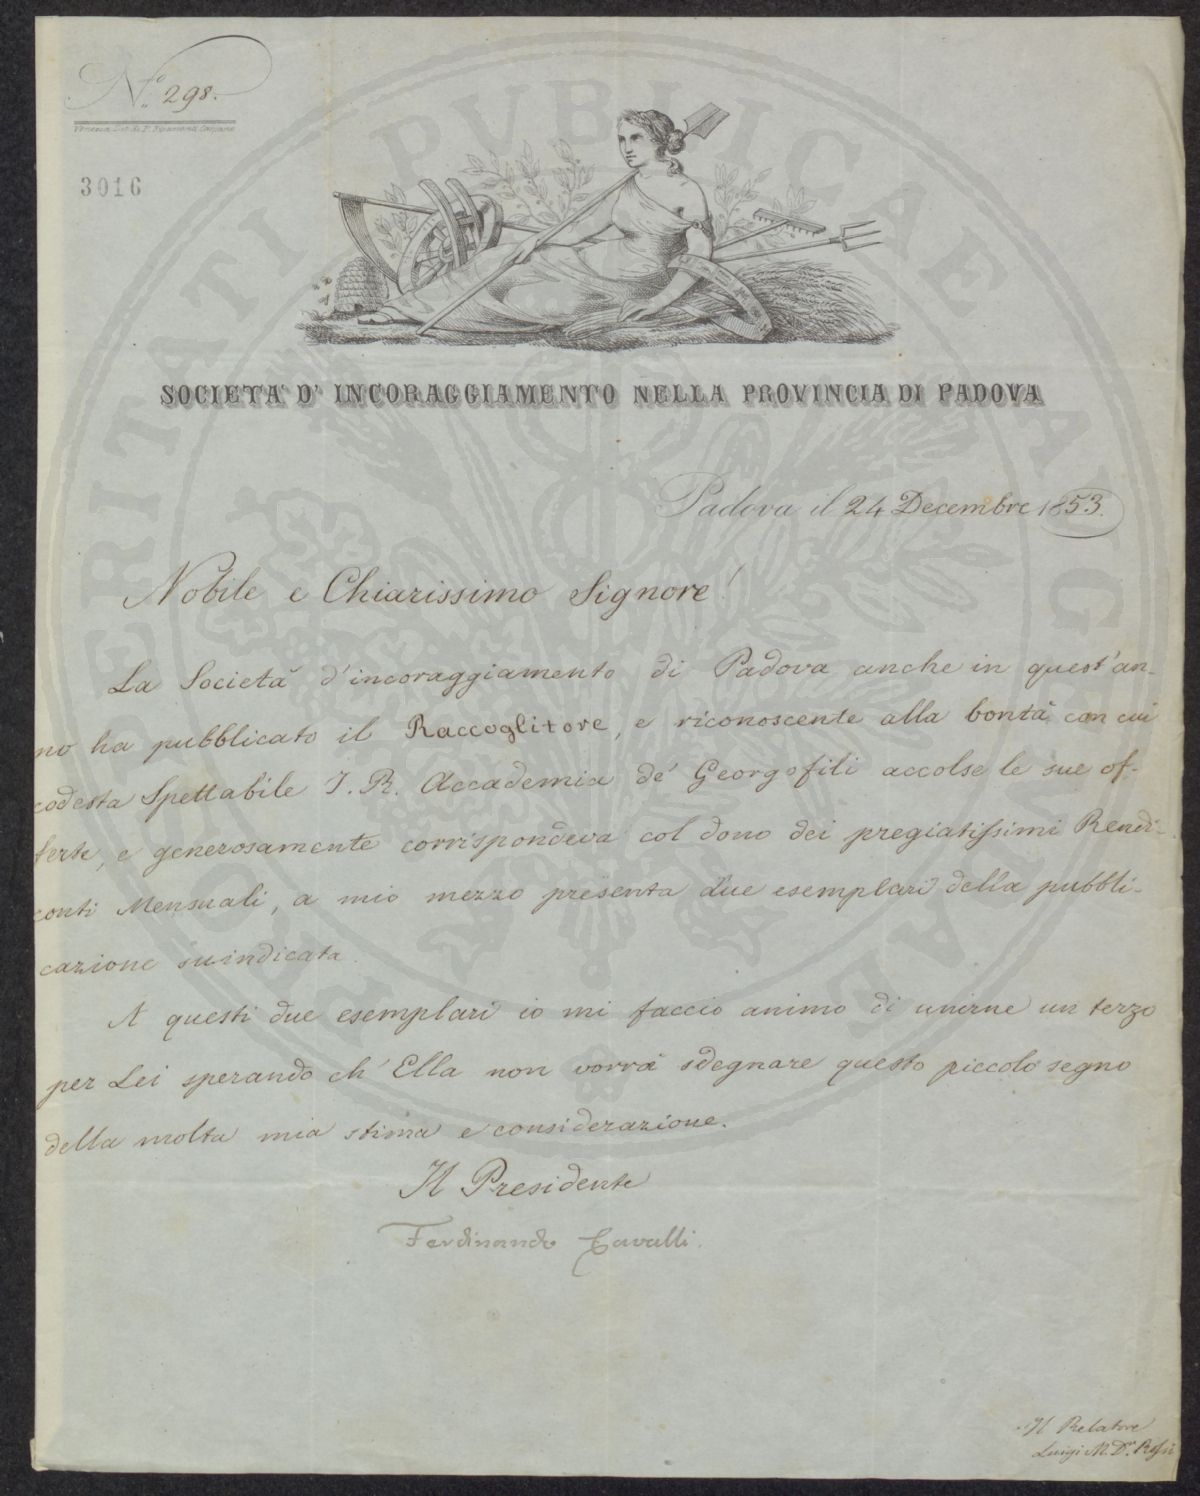 N.o 298.
3016
SOCIETA' D' INCORAGGIAMENTO NELLA PROVINCIA DI PADOVA
Padova il 24 Decembre 1853.
Nobile e Chiarissimo Signore!
La Società d'incoraggiamento di Padova anche in quest'an-
no ha pubblicato il Raccoglitore, e riconoscente alla bontà con cui
codesta Spettabile I. R. Accademia de' Georgofili accolse le sue of-
ferte, e generosamente corrispondeva col dono dei pregiatissimi Rendi-
conti Mensuali, a mio mezzo presenta due esemplari della pubbli-
cazione suindicata.
A questi due esemplari io mi faccio animo di unirne un terzo
per Lei sperando ch' Ella non vorrà sdegnare questo piccolo segno
della molta mia stima e considerazione.
Il Presidente
Ferdinando Cavalli.
Il Relatore
Luigi M. Dr.